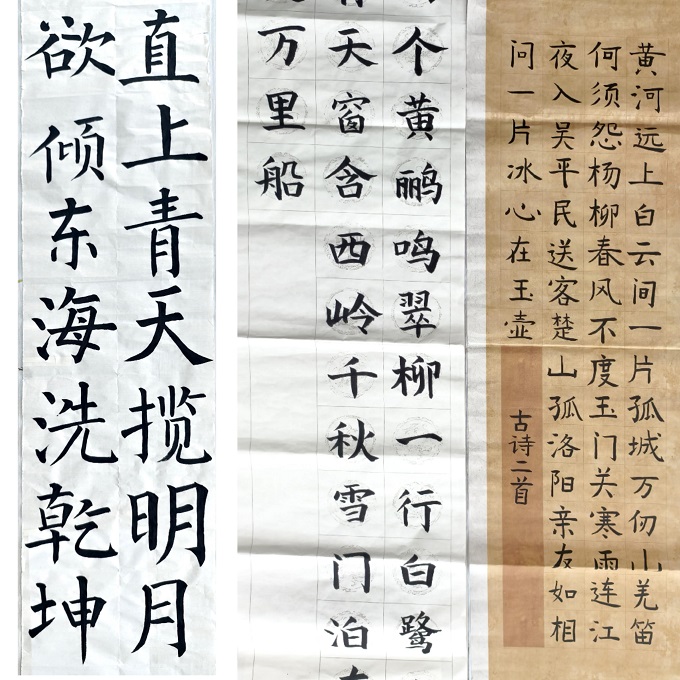 直上青天揽明月
欲倾东海洗乾坤
个黄鹂鸣翠柳一行白鹭
天窗含西岭千秋雪门泊
万里船
黄河远上白云间一片孤城万仞山羌笛
何须怨杨柳春风不度玉门关寒雨连江
夜入吴平民送客楚山孤洛阳亲友如相
问一片冰心在玉壶
古诗二首